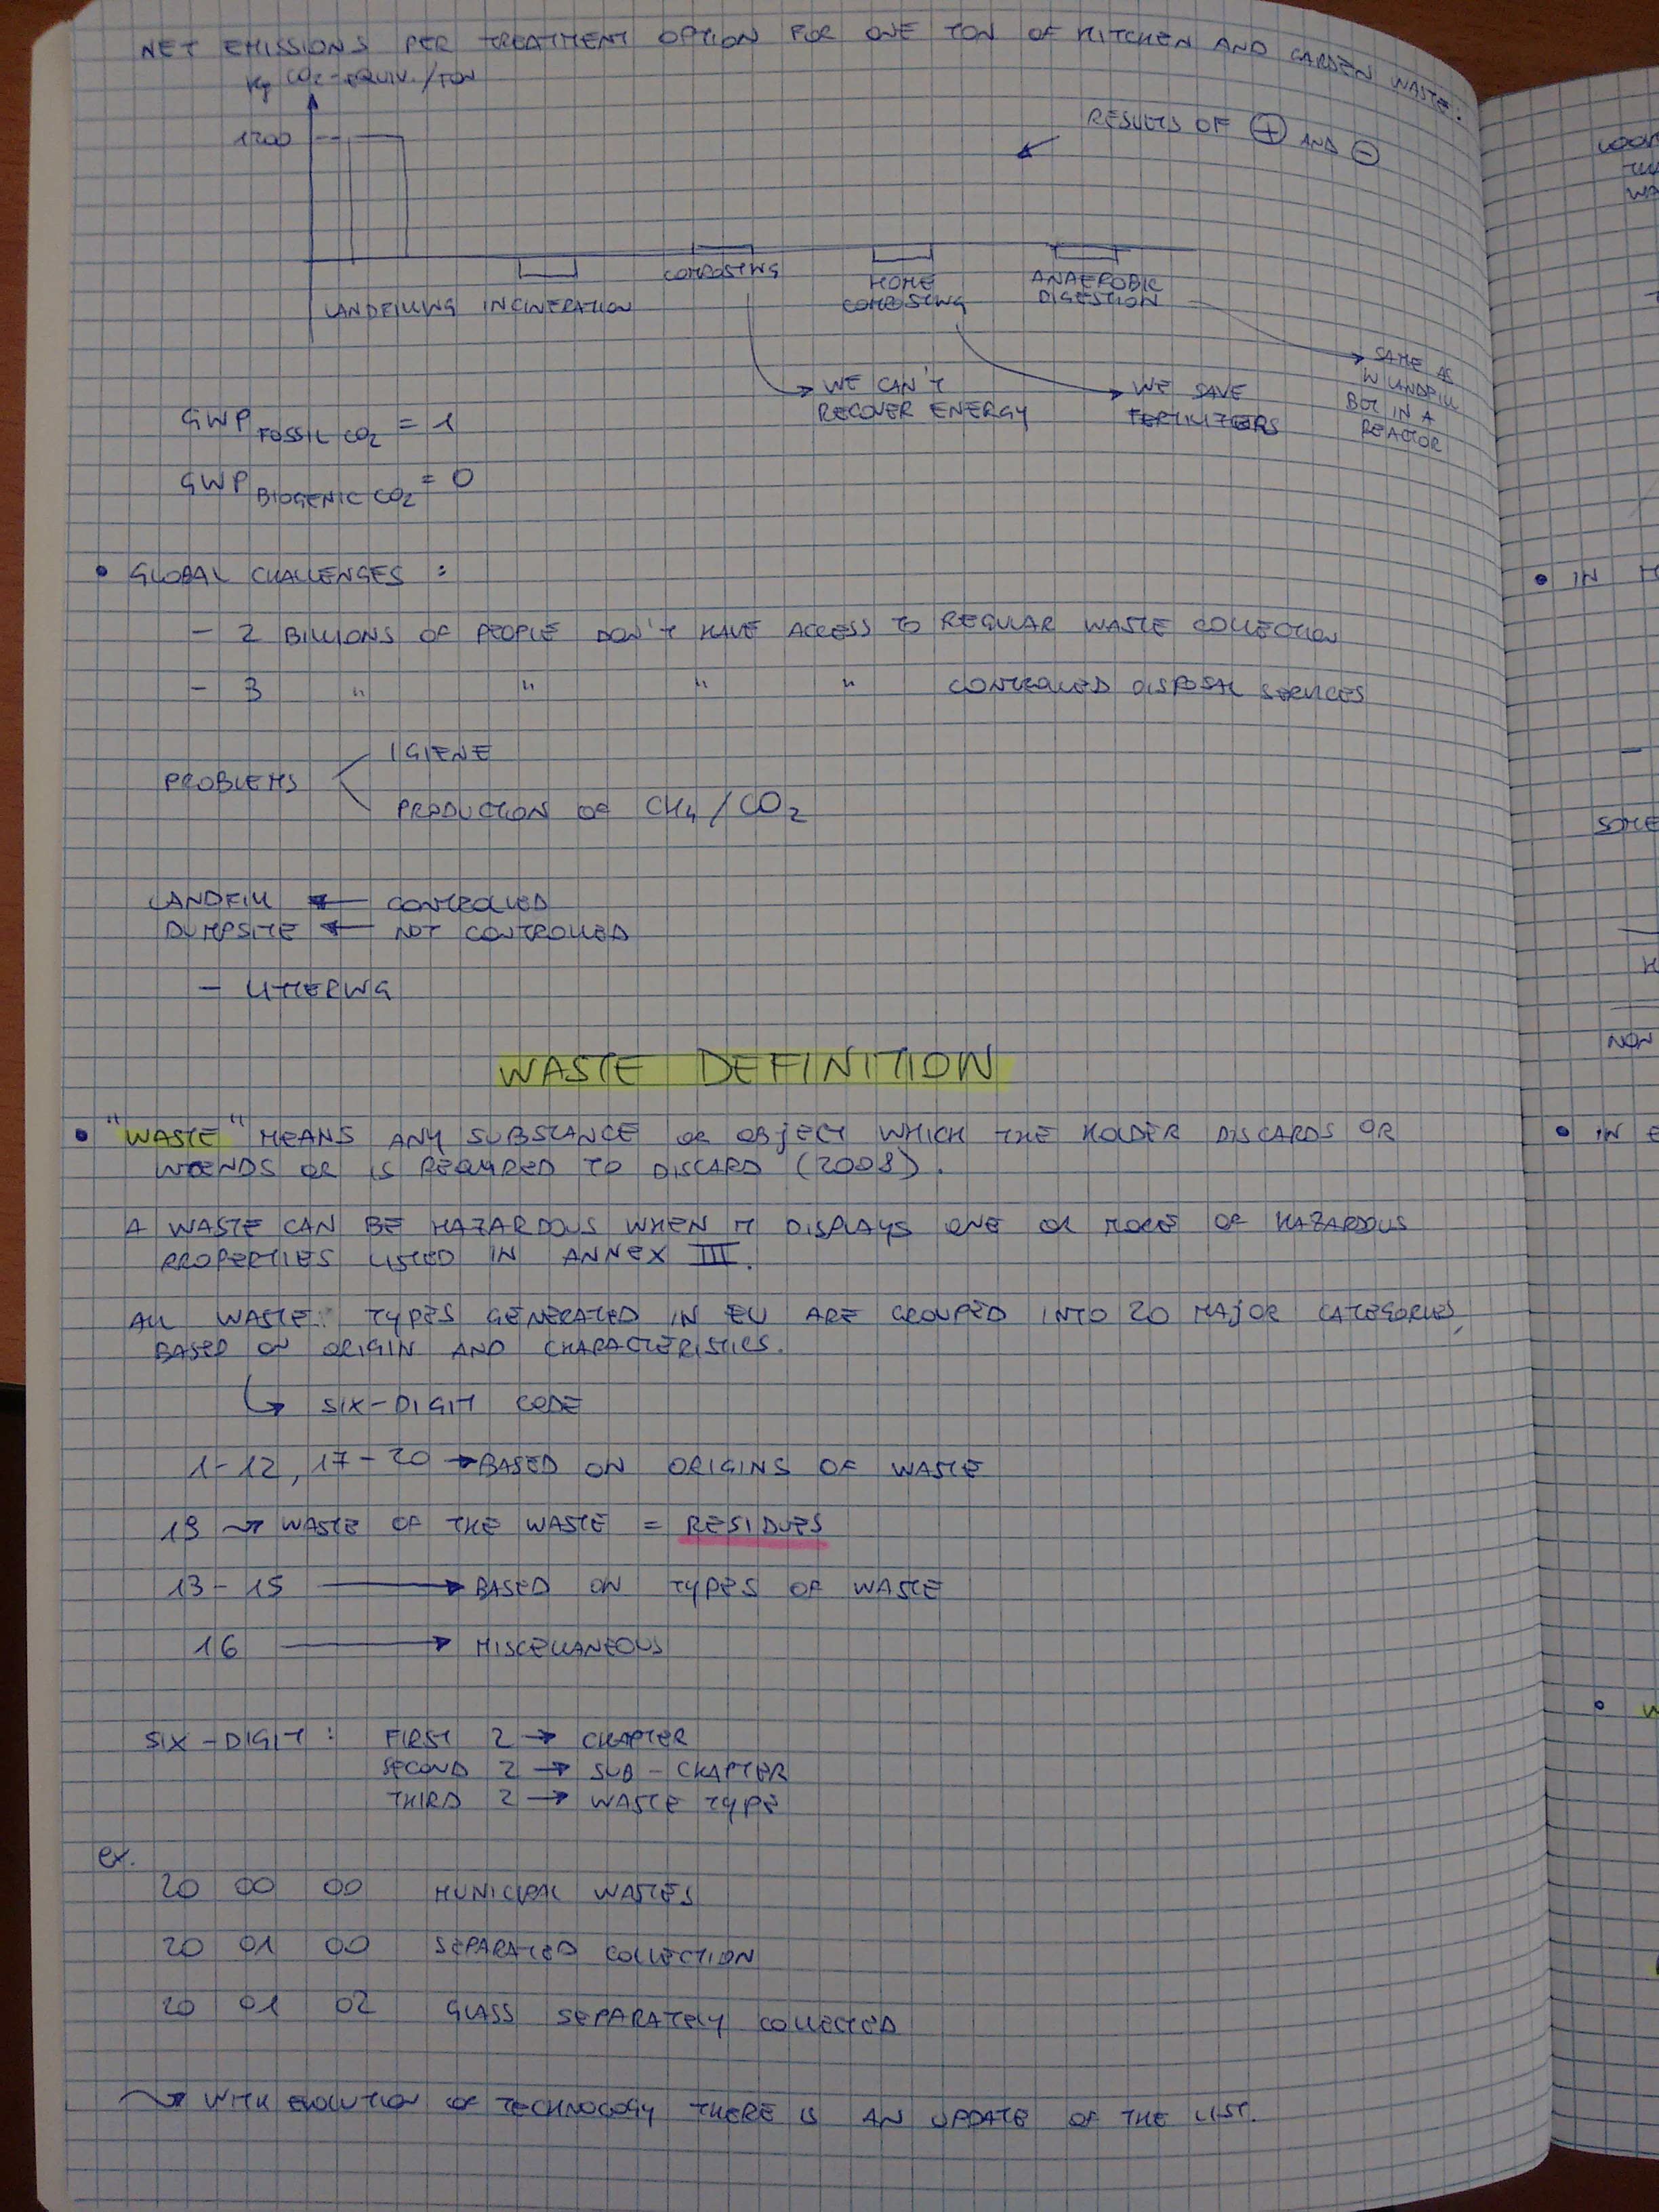 NET EMISSIONS PER TREATMENT OPTION FOR ONE TON OF KITCHEN AND GARDEN WASTE:
Kg CO2-EQUIV./TON
1200
RESULTS OF ⊕ AND ⊖
LANDFILLING INCINERATION COMPOSING HOME COMPOSING ANAEROBIC DIGESTION
WE CAN'T
RECOVER ENERGY
WE SAVE
FERTILIZERS
SAME AS
IN LANDFILL
BUT IN A
REACTOR
GWP FOSSIL CO2 = 1
GWP BIOGENIC CO2 = 0
• GLOBAL CHALLENGES :
- 2 BILLIONS OF PEOPLE DON'T HAVE ACCESS TO REGULAR WASTE COLLECTION
- 3 " " " " CONTROLLED DISPOSAL SERVICES
PROBLEMS
IGIENE
PRODUCTION OF CH4/CO2
LANDFILL ← CONTROLLED
DUMPSITE ← NOT CONTROLLED
- LITTERING
WASTE DEFINITION
• "WASTE" MEANS ANY SUBSTANCE OR OBJECT WHICH THE HOLDER DISCARDS OR
INTENDS OR IS REQUIRED TO DISCARD (2008).
A WASTE CAN BE HAZARDOUS WHEN IT DISPLAYS ONE OR MORE OF HAZARDOUS
PROPERTIES LISTED IN ANNEX III.
ALL WASTE TYPES GENERATED IN EU ARE GROUPED INTO 20 MAJOR CATEGORIES,
BASED ON ORIGIN AND CHARACTERISTICS.
↳ SIX-DIGIT CODE
1-12, 17-20 → BASED ON ORIGINS OF WASTE
19 → WASTE OF THE WASTE = RESIDUES
13-15 → BASED ON TYPES OF WASTE
16 → MISCELLANEOUS
SIX-DIGIT : FIRST 2 → CHAPTER
SECOND 2 → SUB-CHAPTER
THIRD 2 → WASTE TYPE
ex.
20 00 00 MUNICIPAL WASTES
20 01 00 SEPARATED COLLECTION
20 01 02 GLASS SEPARATELY COLLECTED
→ WITH EVOLUTION OF TECHNOLOGY THERE IS AN UPDATE OF THE LIST.
• IN
SOME
NON
• IN